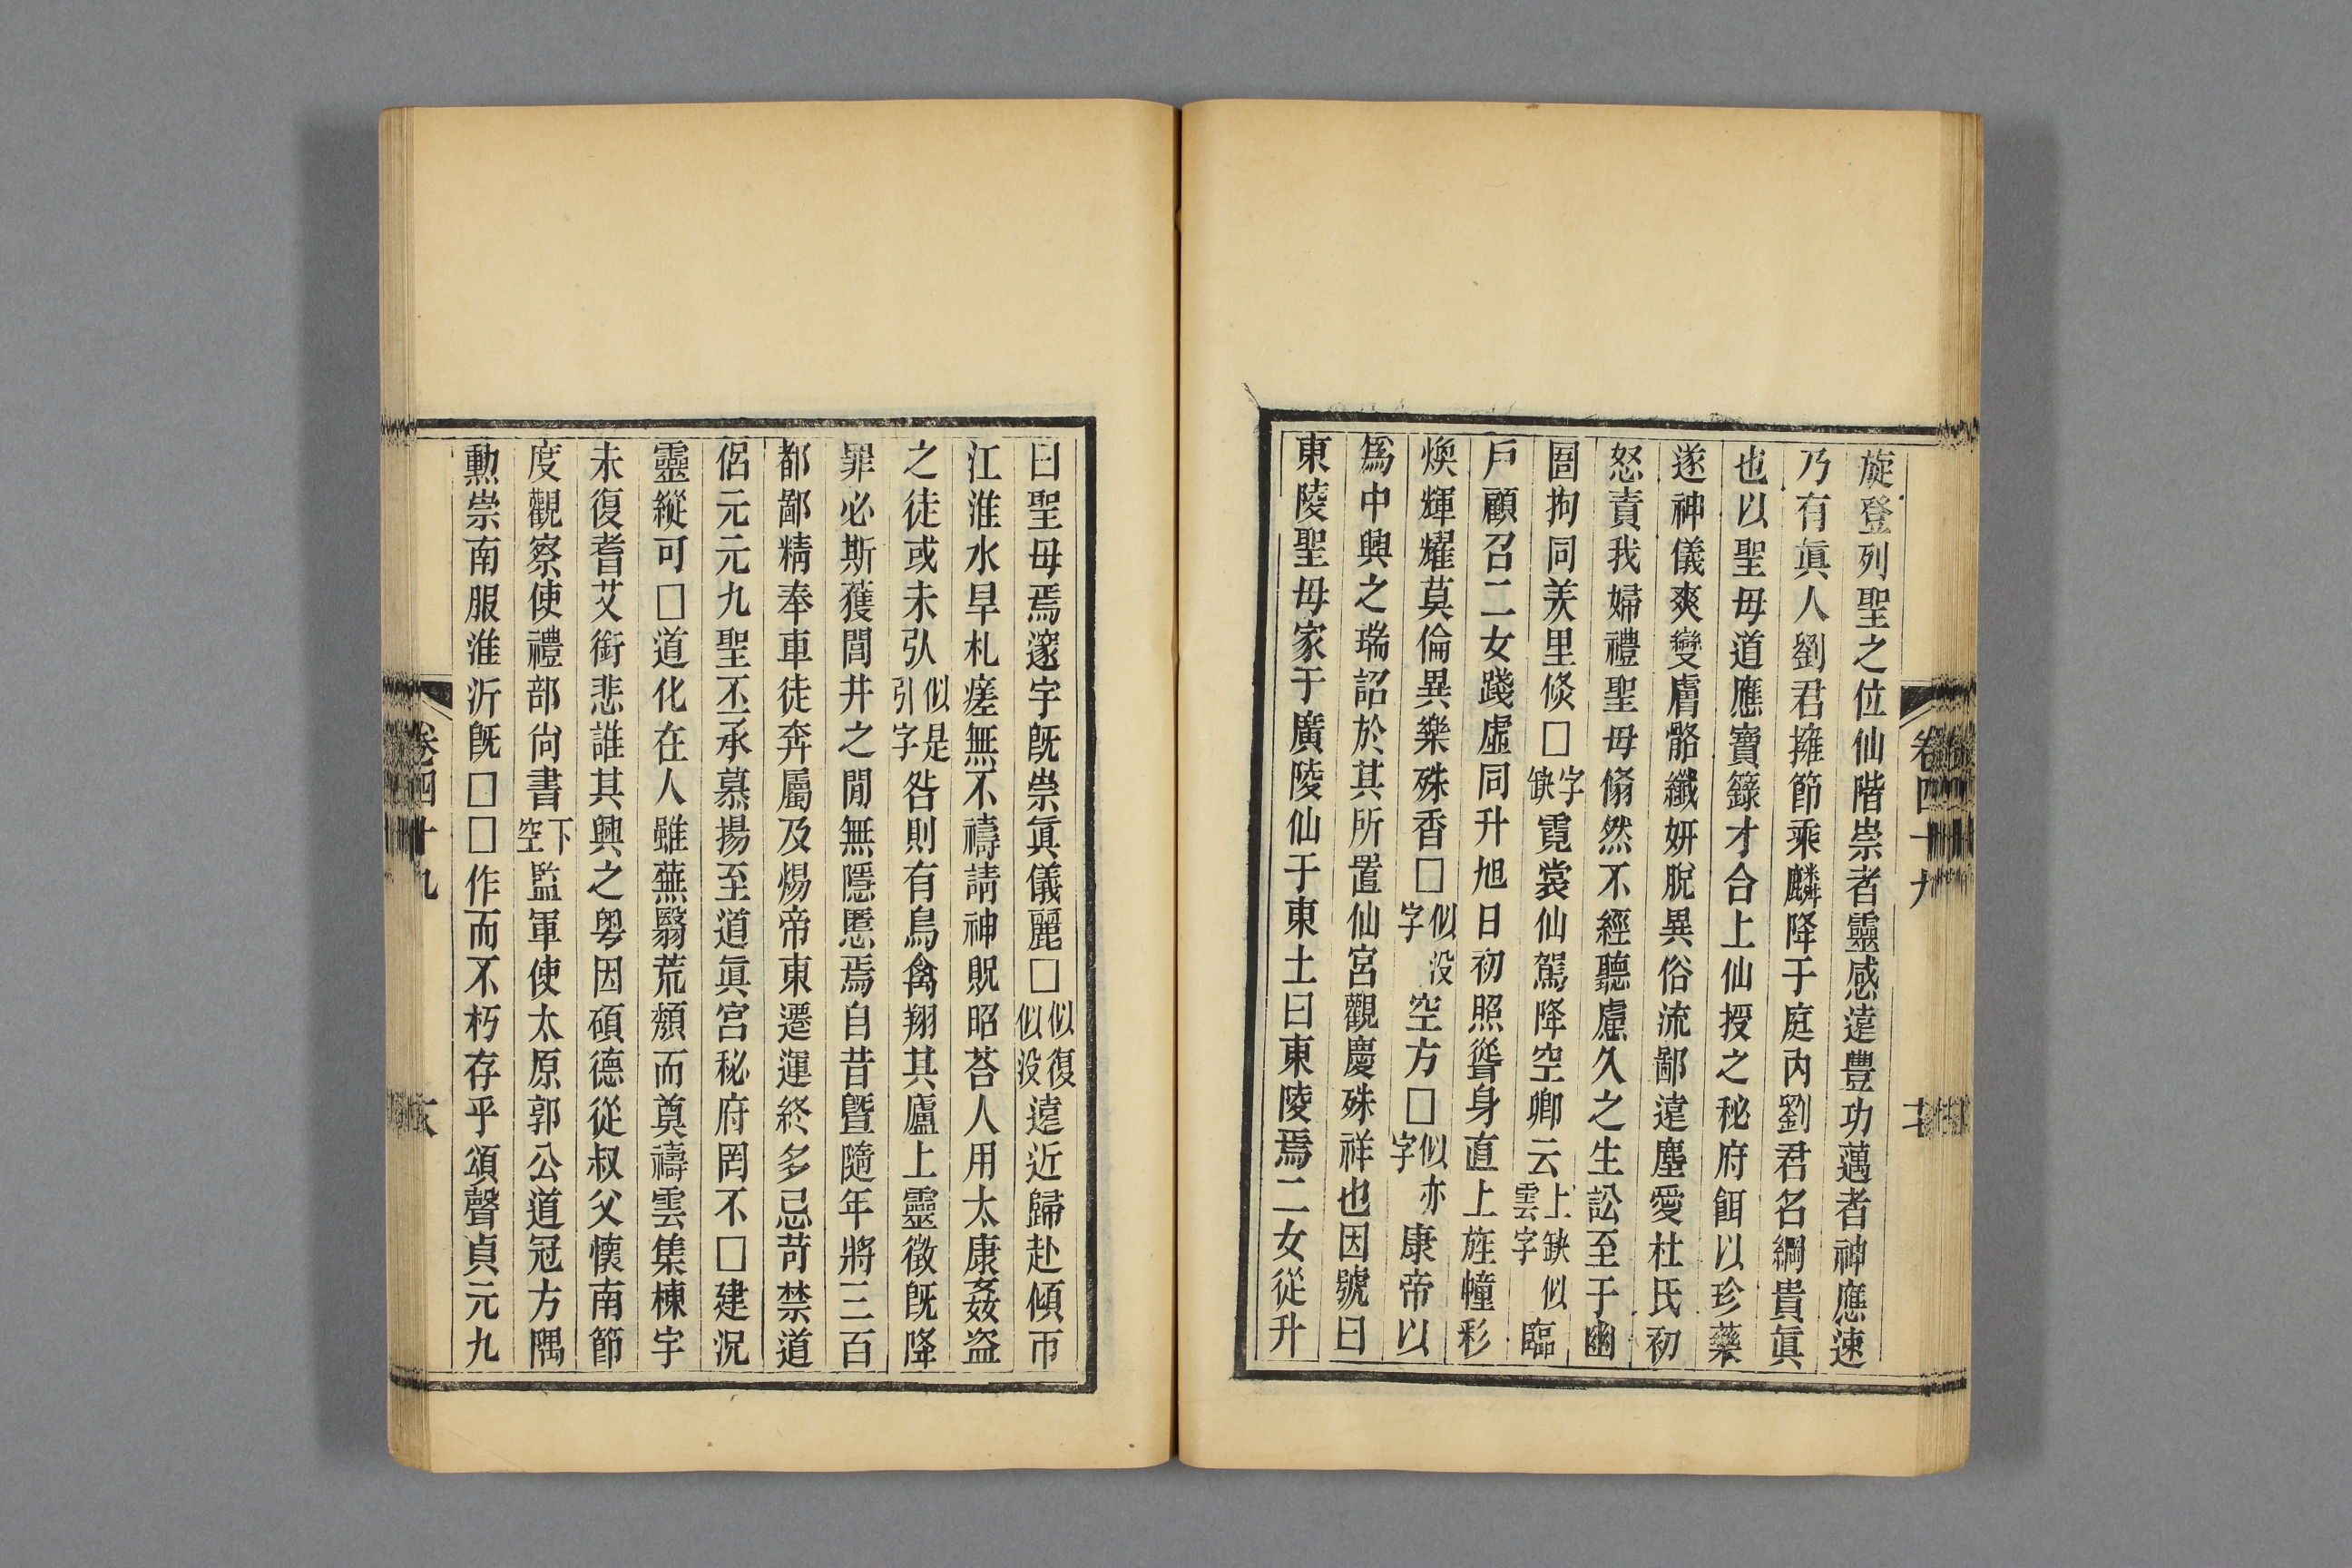 旋登列聖之位仙階崇者靈感遠豐功邁者神應速
乃有眞人劉君擁節乘麟降于庭內劉君名綱貴眞
也以聖毋道應寶籙才合上仙授之秘府餌以珍藥
遂神儀爽變膚骼纖姸脫異俗流鄙遠塵愛杜氏初
怒責我婦禮聖毋翛然不經聽慮久之生訟至于幽
圄拘同羑里倏□字缺霓裳仙駕降空卿云上缺似雲字臨
戶顧召二女踐虛同升旭日初照聳身直上旌幢彩
煥輝耀莫倫異樂殊香□似没字空方□似亦字康帝以
爲中興之瑞詔於其所置仙宮觀慶殊祥也因號曰
東陵聖毋家于廣陵仙于東土曰東陵焉二女從升
卷四十九
曰聖毋焉邃宇旣崇眞儀麗□似復似没遠近歸赴傾帀
江淮水旱札瘥無不禱請神貺昭荅人用太康姦盜
之徒或未引似是引字咎則有鳥禽翔其廬上靈徵旣降
罪必斯獲閭井之閒無隱慝焉自昔曁隨年將三百
都鄙精奉車徒奔屬及煬帝東遷運終多忌苛禁道
侶元元九聖丕承慕揚至道眞宮秘府罔不□建況
靈縱可□道化在人雖蕪翳荒頹而奠禱雲集棟宇
未復耆艾銜悲誰其興之粤因碩德從叔父懷南節
度觀察使禮部尙書下空監軍使太原郭公道冠方隅
勳崇南服淮沂旣□□作而不朽存乎頌聲貞元九
卷四十九